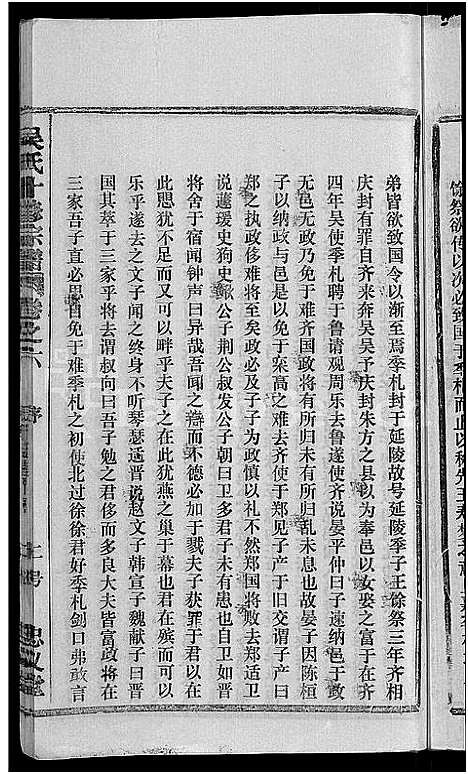 馀祭欲传以次必致国于季札而止以称
弟皆欲致国令以渐至焉季札封于延陵故号延陵季子王馀祭三年齐相
庆封有罪自齐来奔吴吴予庆封朱方之县以为奉邑以女娶之富于在齐
四年吴使季札聘于鲁请观周乐去鲁遂使齐说晏平仲曰子速纳邑于政
无邑无政乃免于难齐国政将有所归未有所归乱未息也故晏子因陈桓
子以纳政与邑是以免于栾高之难去齐使于郑见子产于旧交谓子产曰
郑之执政侈难将至矣政必及子子为政慎以礼不然郑国将败去郑适卫
说蘧瑗史狗史鰌公子荆公叔发公子朝曰卫多君子未有患也自卫如晋
将舍于宿闻钟声曰异哉吾闻之辩而不德必加于戮夫子获罪于君以在
此惧犹不足而又可以畔乎夫子之在此犹燕之巢于幕也君在殡而可以
乐乎遂去之文子闻之终身不听琴瑟适晋说赵文子韩宣子魏献子曰晋
国其萃于三家乎将去曰谓叔向曰吾子勉之君侈而多良大夫皆富政将在
三家吾子直必思自免于难季札之初使北过徐徐君好季札剑口弗敢言
吴氏十修宗谱
卷之六
序
忠义堂